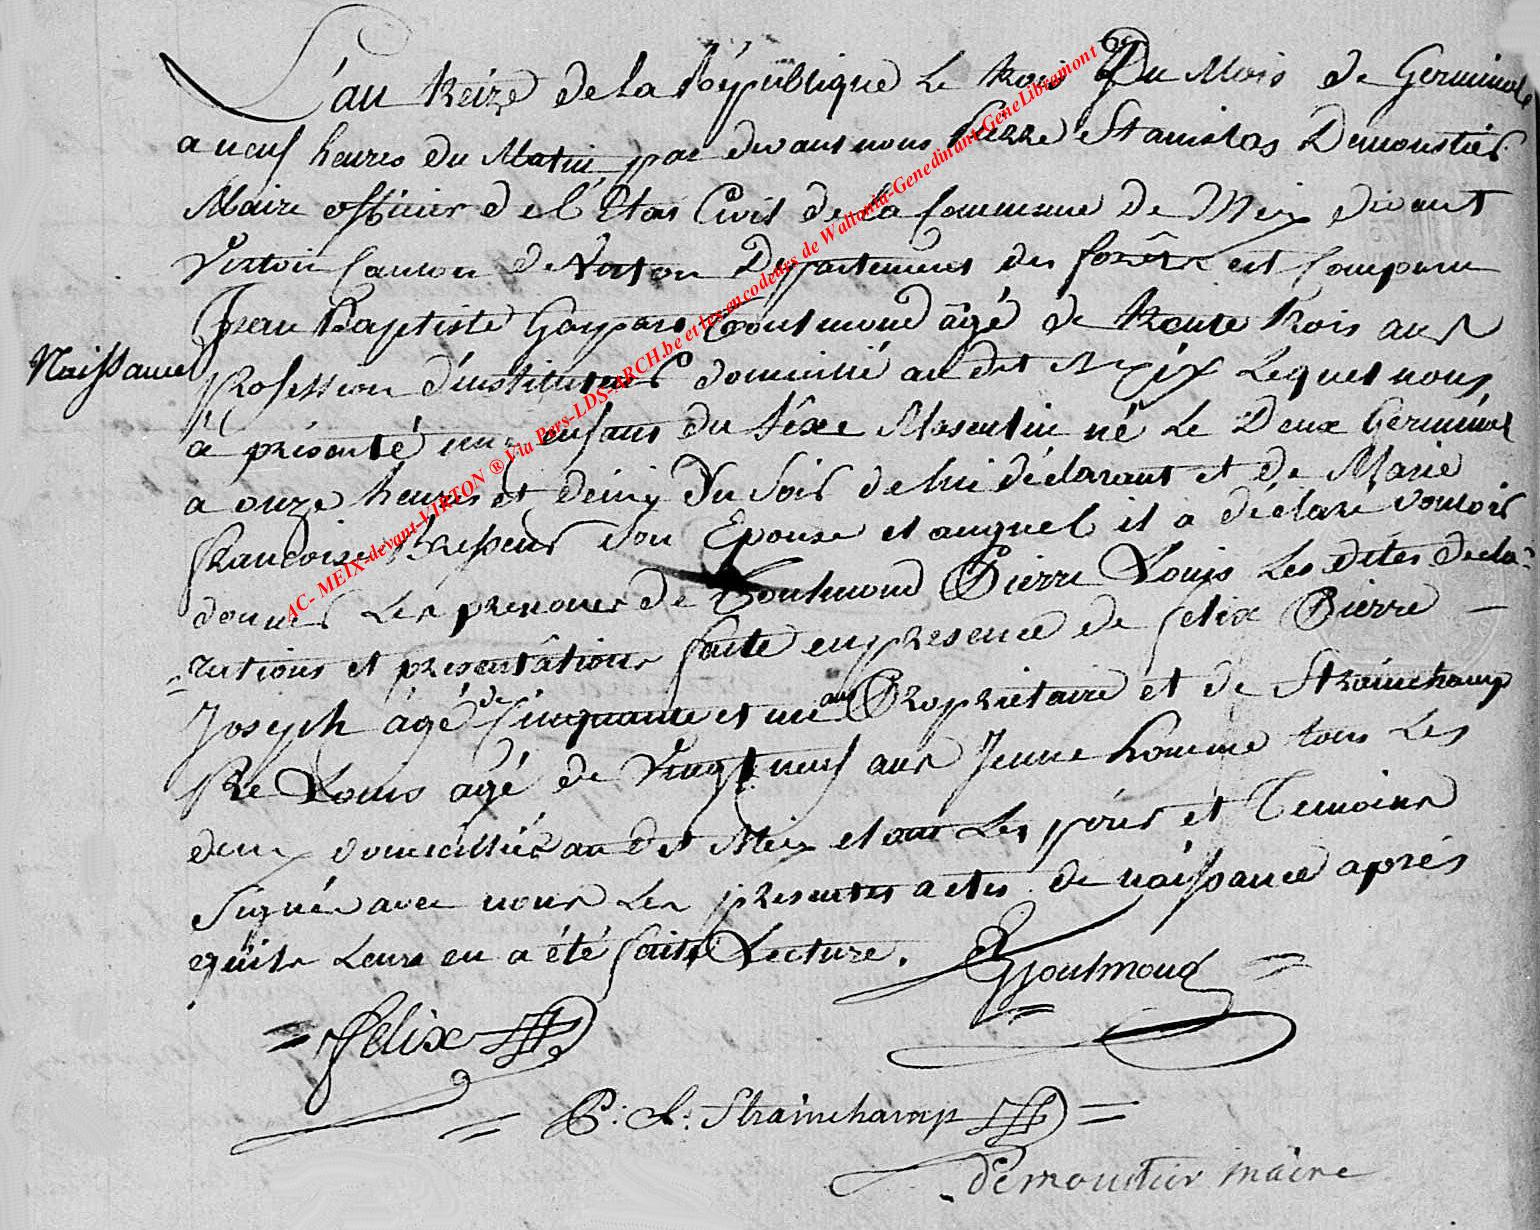 L'an treize de la République Le trois Du Mois de Germinale
a neuf heures du Matin par devant nous Pierre Stanislas Demoustier
Maire officier de l'Etat Civil de la Commune de Meix devant
Virton Canton de Virton Departement des forêts est Comparu
Jean Baptiste Gaspard Goutmond âgé de trente trois ans
Naissance
profession d'instituteur domicilié au dit Meix Lequel nous
à présenté un enfant du séxe Masculin né Le Deux Germinal
a onze heures et demy Du Soir de lui déclarant et de Marie
francoise Son Epouse et auquel il a déclaré vouloir
donner Les prenoms de Goutmond Pierre Louis Les dites décla-
=rations et presentâtions faite en presence de felix Pierre —
Joseph âgé de Cinquante et un ans Propriétaire et de Strainchamp
Pre Louis agé de Vingt neuf ans Jeune homme tous Les
deux domicilliés au dit Meix et ont Les pères et Temoins
Signés avec nous Les presentes actes de naissance aprés
qu'ils Leurs en a été faite Lecture.
Goutmond
felix
P: L: Strainchamp
demoustier maire
AC- MEIX-devant-VIRTON ® Via Pers-LDS-ARCH.be et les encodeurs de Wallonia-Genedinant-GeneLibramont